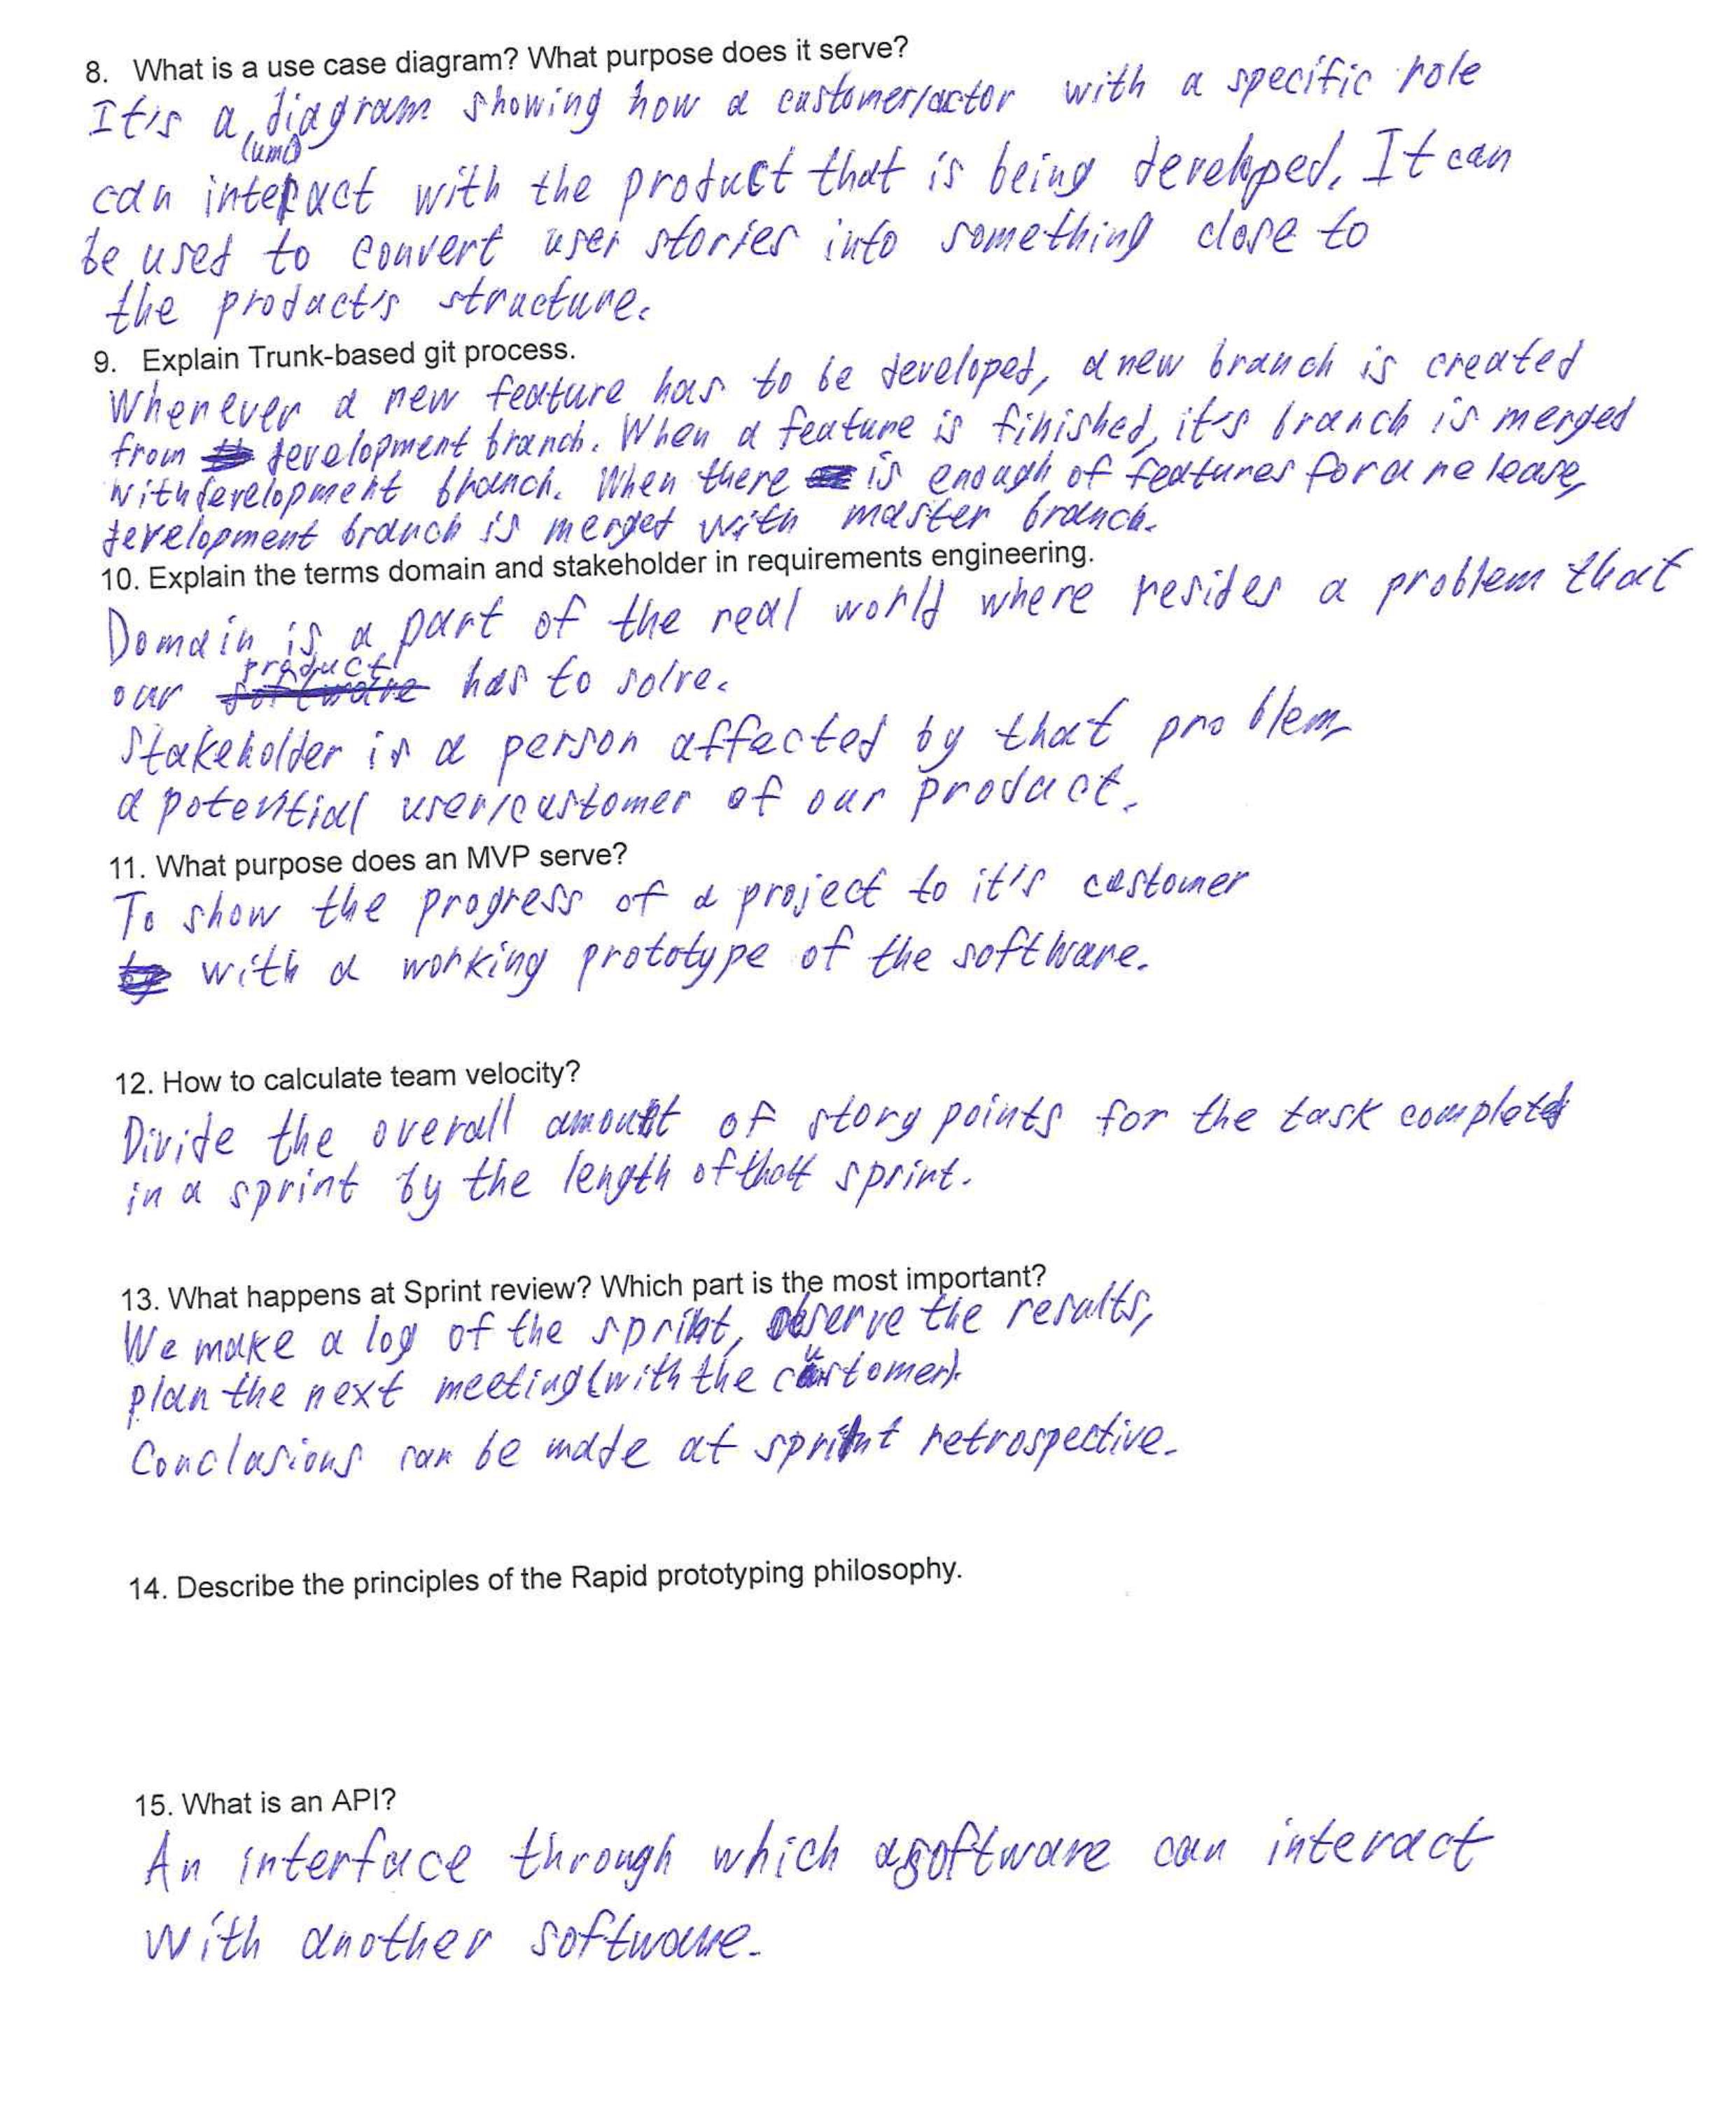 8. What is a use case diagram? What purpose does it serve?
It's a diagram showing how a customer/actor with a specific role
(uml)
can interact with the product that is being developed. It can
be used to convert user stories into something close to
the product's structure.
9. Explain Trunk-based git process.
Wherever a new feature has to be developed, a new branch is created
from development branch. When a feature is finished, it's branch is merged
with development branch. When there is enough of features for a release,
development branch is merged with master branch.
10. Explain the terms domain and stakeholder in requirements engineering.
Domain is a part of the real world where resides a problem that
product
our software has to solve.
Stakeholder is a person affected by that problem,
a potential user/customer of our product.
11. What purpose does an MVP serve?
To show the progress of a project to it's customer
by with a working prototype of the software.
12. How to calculate team velocity?
Divide the overall amount of story points for the task completed
in a sprint by the length of that sprint.
13. What happens at Sprint review? Which part is the most important?
We make a log of the sprint, observe the results,
plan the next meeting (with the customer).
Conclusions can be made at sprint retrospective.
14. Describe the principles of the Rapid prototyping philosophy.
15. What is an API?
An interface through which a software can interact
with another software.